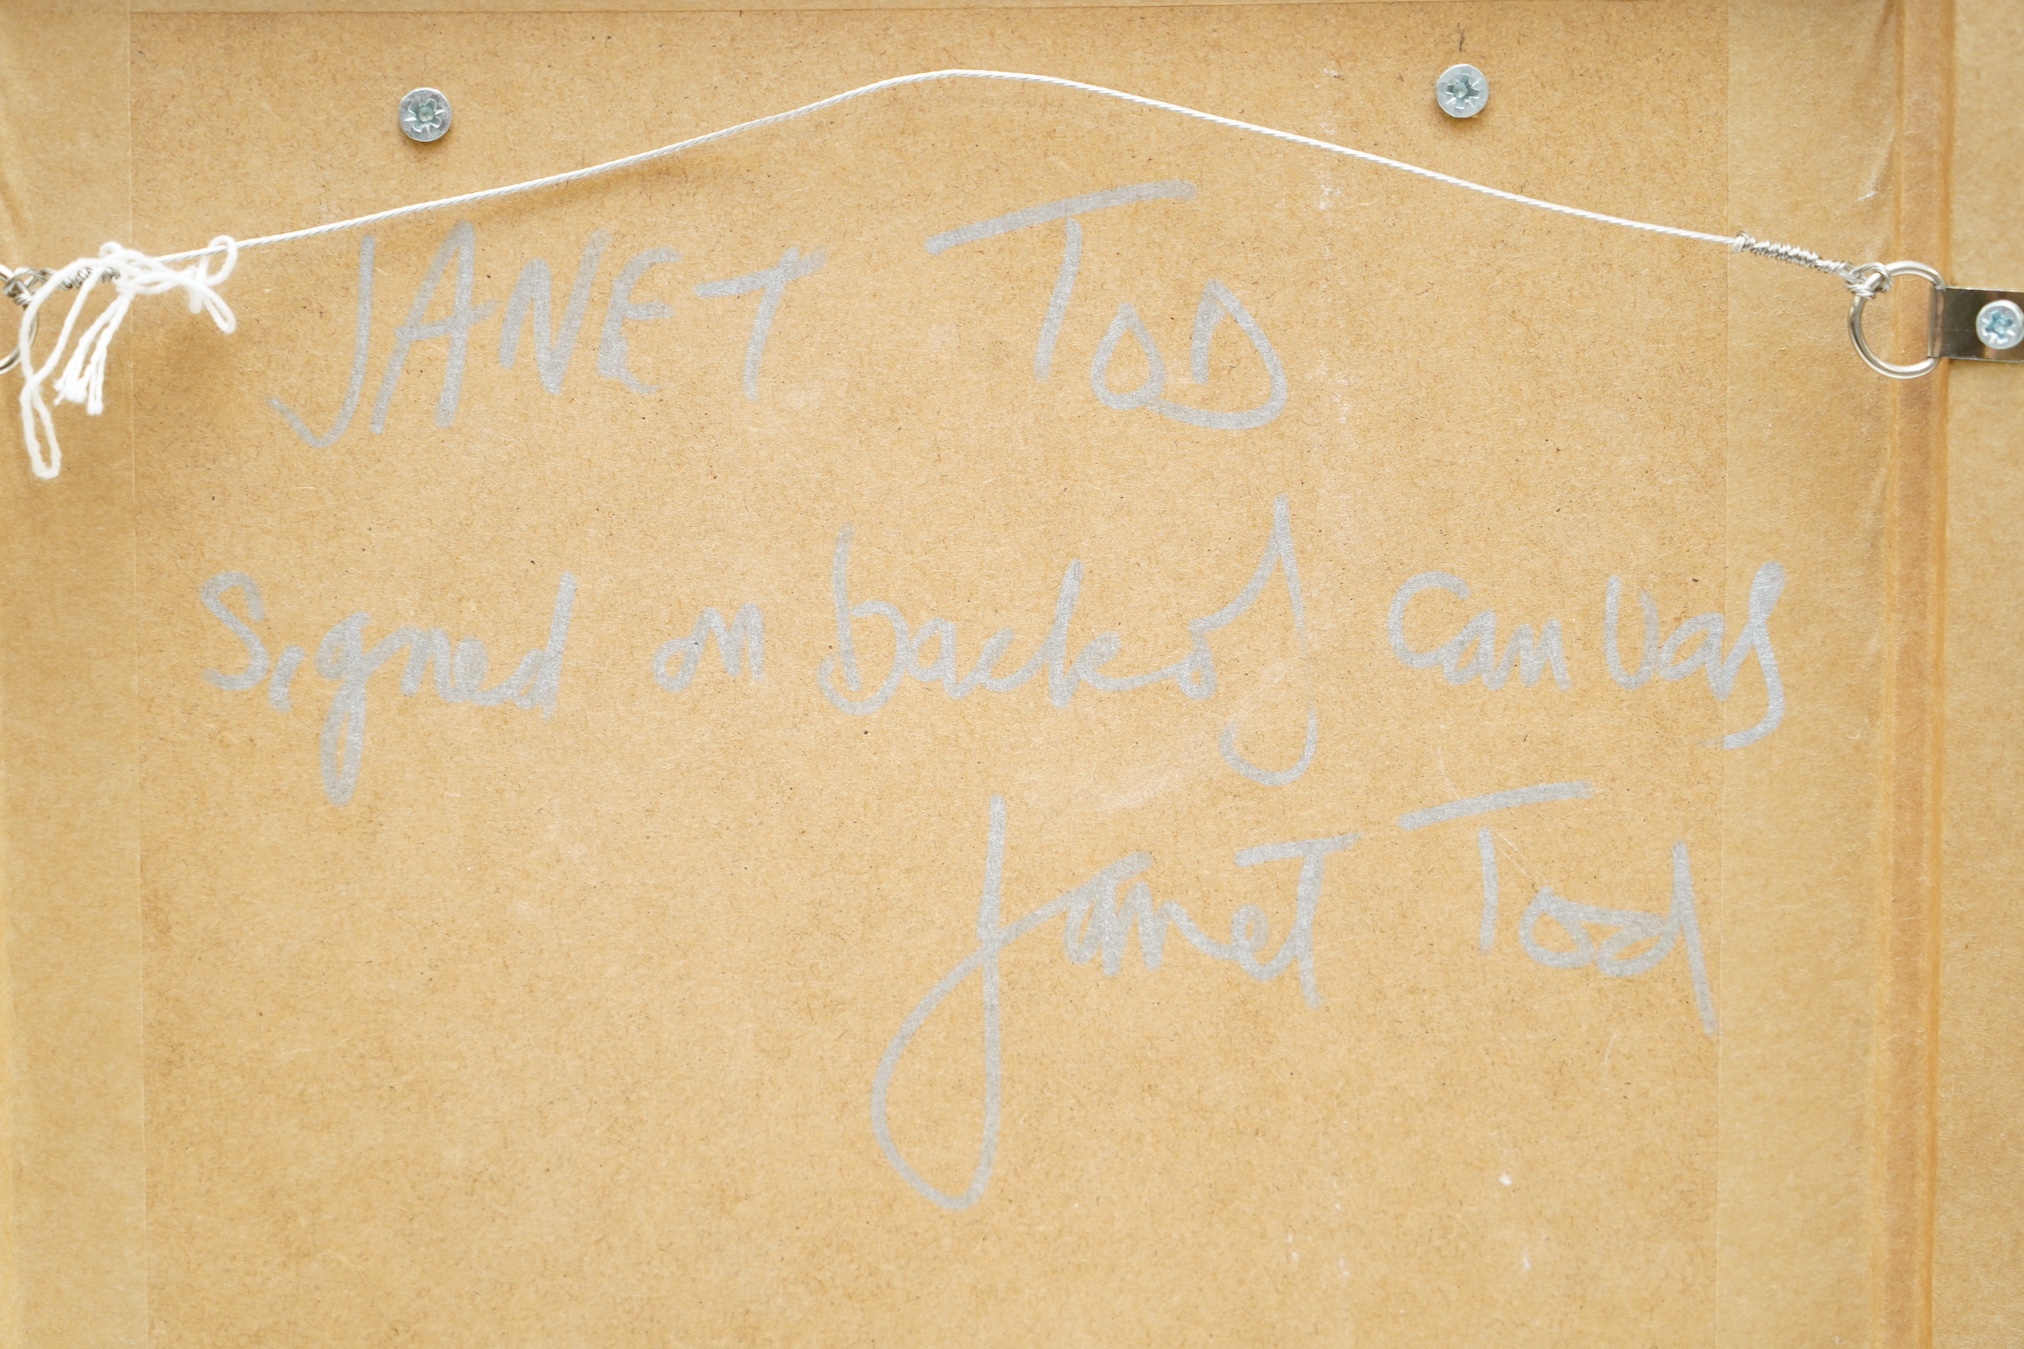 JANET TOD
Signed on back of canvas
Janet Tod